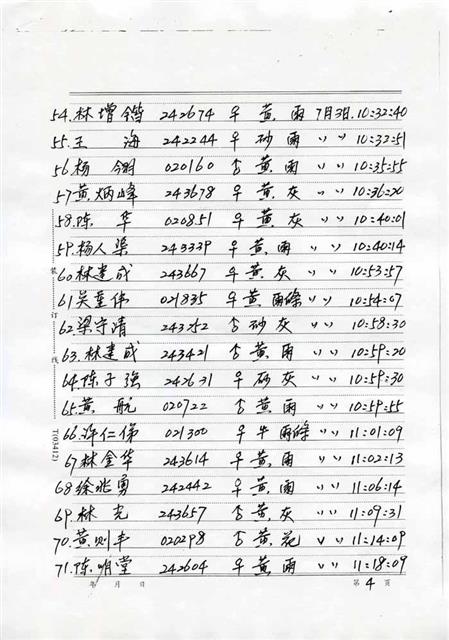 54. 林增锵 242674 ♀ 黄 雨 7月3日. 10:32:40
55. 王 海 242244 ♀ 砂 雨 〃 〃 10:32:51
56. 杨 翎 020160 ♂ 黄 雨 〃 〃 10:35:55
57. 黄炳峰 243678 ♀ 黄 灰 〃 〃 10:36:20
58. 陈 华 020851 ♀ 黄 灰 〃 〃 10:40:01
59. 杨人渠 243339 ♀ 黄 雨 〃 〃 10:40:14
60. 林建成 243667 ♀ 黄 灰 〃 〃 10:53:57
61. 吴奎伟 021835 ♀ 黄 雨條 〃 〃 10:54:07
62. 梁守清 243252 ♂ 砂 灰 〃 〃 10:58:30
63. 林建成 243421 ♂ 黄 雨 〃 〃 10:59:20
64. 陈子强 242631 ♀ 砂 灰 〃 〃 10:59:30
65. 黄 航 020722 ♂ 黄 雨 〃 〃 10:59:55
66. 许仁俤 021300 ♀ 牛 雨條 〃 〃 11:01:09
67. 林金华 243614 ♀ 黄 雨 〃 〃 11:02:13
68. 徐兆勇 242442 ♀ 黄 雨 〃 〃 11:06:14
69. 林 光 243657 ♂ 黄 灰 〃 〃 11:09:31
70. 黄则丰 020298 ♂ 黄 花 〃 〃 11:14:09
71. 陈明堂 242604 ♀ 黄 雨 〃 〃 11:18:09
年 月 日 第 4 页
装
订
线
T(03412)